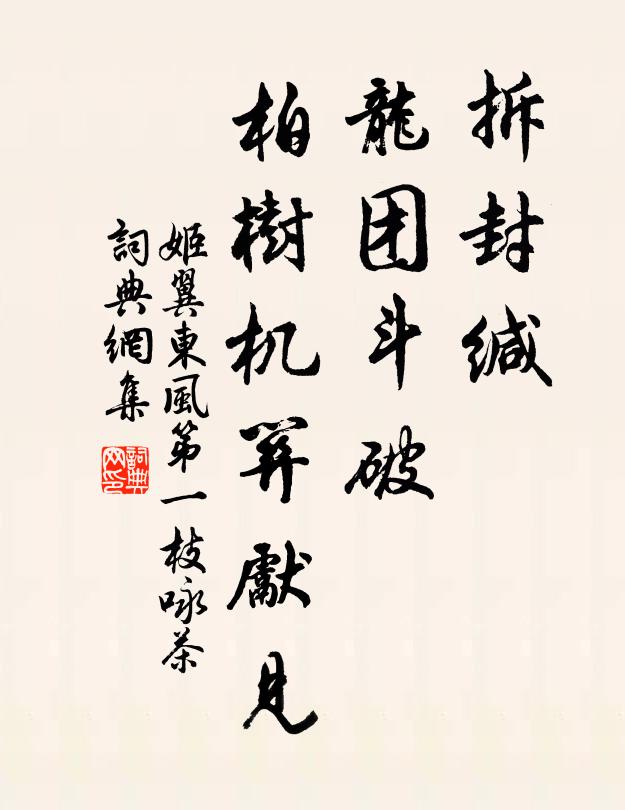 拆封缄
龍团斗破
柏樹机獻見
姬翼東風第一枝咏茶
詞典網集
詞典网印